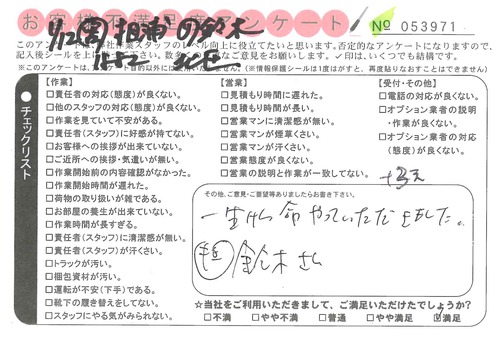 お客様不満足度アンケート
№ 053971
このアンケートは
作業スタッフのレベル向上に役立てたいと思います。否定的なアンケートになりますので、
ご意見をお願いします。✓印は、いくつでも結構です。
※このアンケートは
目的以外に
(※情報保護シールは1度はがすと、再度貼りなおすことはできません)
チェックリスト
【作業】
□責任者の対応(態度)が良くない。
□他のスタッフの対応(態度)が良くない。
□作業を見ていて不安がある。
□責任者(スタッフ)に好感が持てない。
□お客様への挨拶が出来ていない。
□ご近所への挨拶・気遣いが無い。
□作業開始前の内容確認がなかった。
□作業開始時間が遅れた。
□荷物の取り扱いが雑である。
□お部屋の養生が出来ていない。
□作業時間が長すぎる。
□責任者(スタッフ)に清潔感が無い。
□責任者(スタッフ)が汗くさい。
□トラックが汚い。
□梱包資材が汚い。
□運転が不安(下手)である。
□靴下の履き替えをしてない。
□スタッフにやる気がみられない。
【営業】
□見積もり時間に遅れた。
□見積もり時間が長い。
□営業マンに清潔感が無い。
□営業マンが煙草くさい。
□営業マンが汗くさい。
□営業態度が良くない。
□営業の説明と作業が一致してない。
【受付・その他】
□電話の対応が良くない。
□オプション業者の説明
・作業が良くない。
□オプション業者の対応
(態度)が良くない。
その他、ご意見・ご要望等ありましたらお書き下さい。
一生けん命やっていただきました。
鈴木さん
☆当社をご利用いただきまして、ご満足いただけたでしょうか?
□不満 □やや不満 □普通 □やや満足 ☑満足